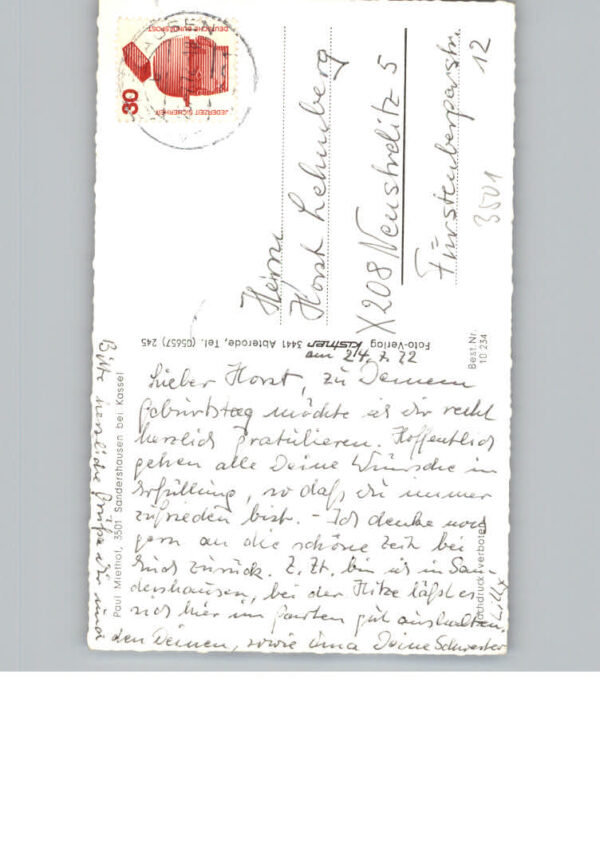 DEUTSCHE BUNDESPOST
JEDERZEIT SICHERHEIT
30
Herrn
Horst Lehmberg
X208 Neustrelitz 5
Fürstenbergerstr.
12
3501
Foto-Verlag Kistner 3441 Abterode, Tel. (05657) 245
Best.Nr.
10 234
Paul Miethal, 3501 Sandershausen bei Kassel
Nachdruck verboten
am 24.7.72
Lieber Horst, zu Deinem
Geburtstag möchte ich dir recht
herzlich gratulieren. Hoffentlich
gehen alle Deine Wünsche in
Erfüllung, so daß du immer
zufrieden bist. - Ich denke noch
gern an die schöne Zeit bei
Euch zurück. Z. Zt. bin ich in San-
dershausen, bei der Hitze läßt es
sich hier im Garten gut aushalten.
Bitte herzliche Grüße dir und
den Deinen, sowie Oma Deine Schwester
Lilly